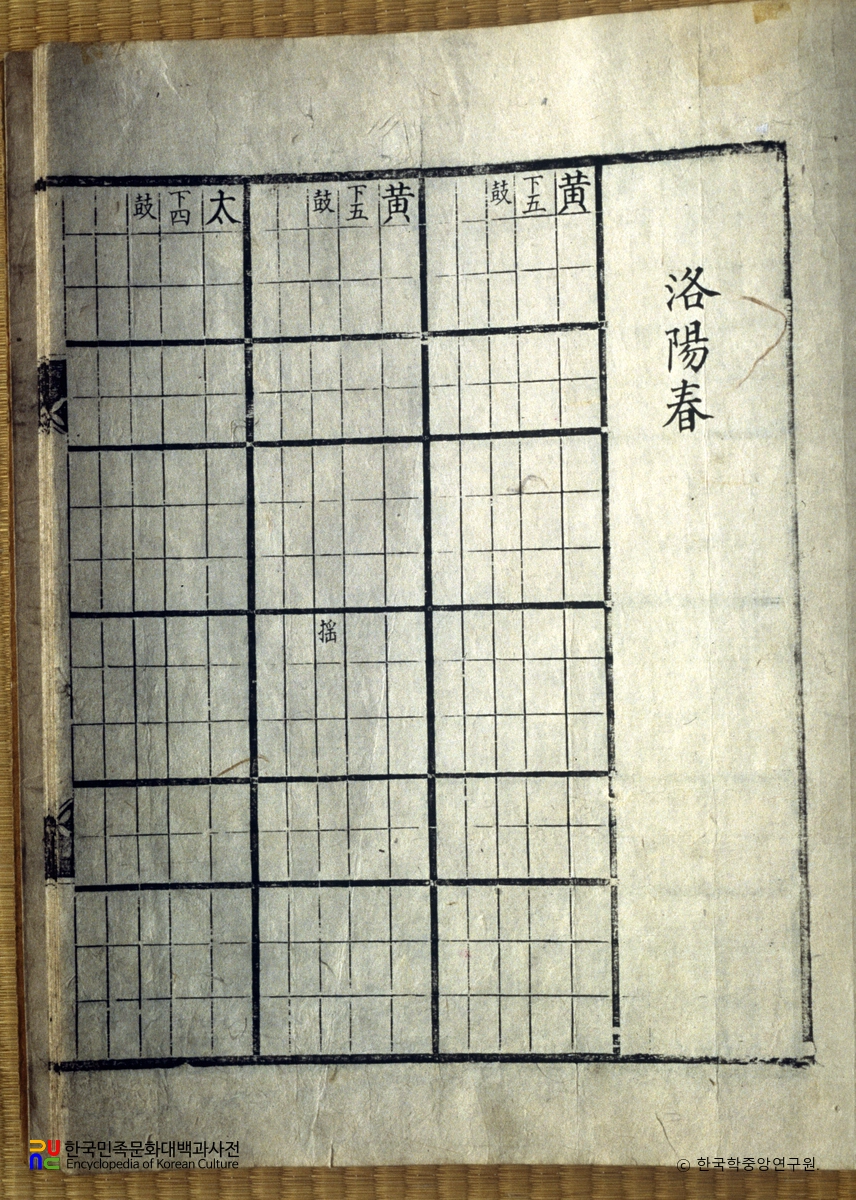 洛陽春
黄
下五
鼓
黄
下五
鼓
搖
太
下四
鼓
한국민족문화대백과사전
Encyclopedia of Korean Culture
© 한국학중앙연구원